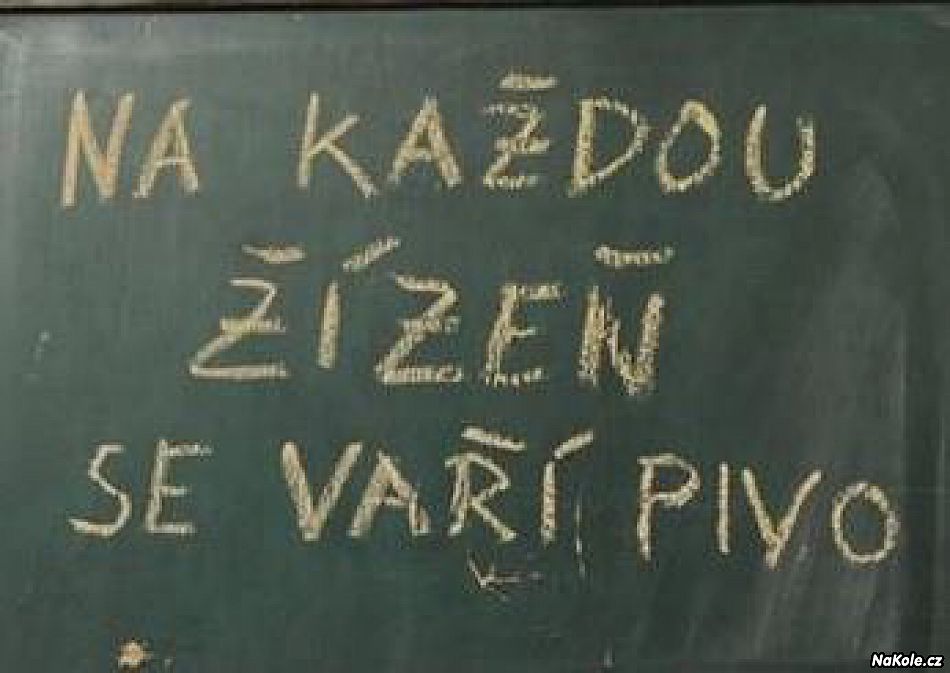 NA KAŽDOU
ŽÍZEŇ
SE VAŘÍ PIVO
NaKole.cz